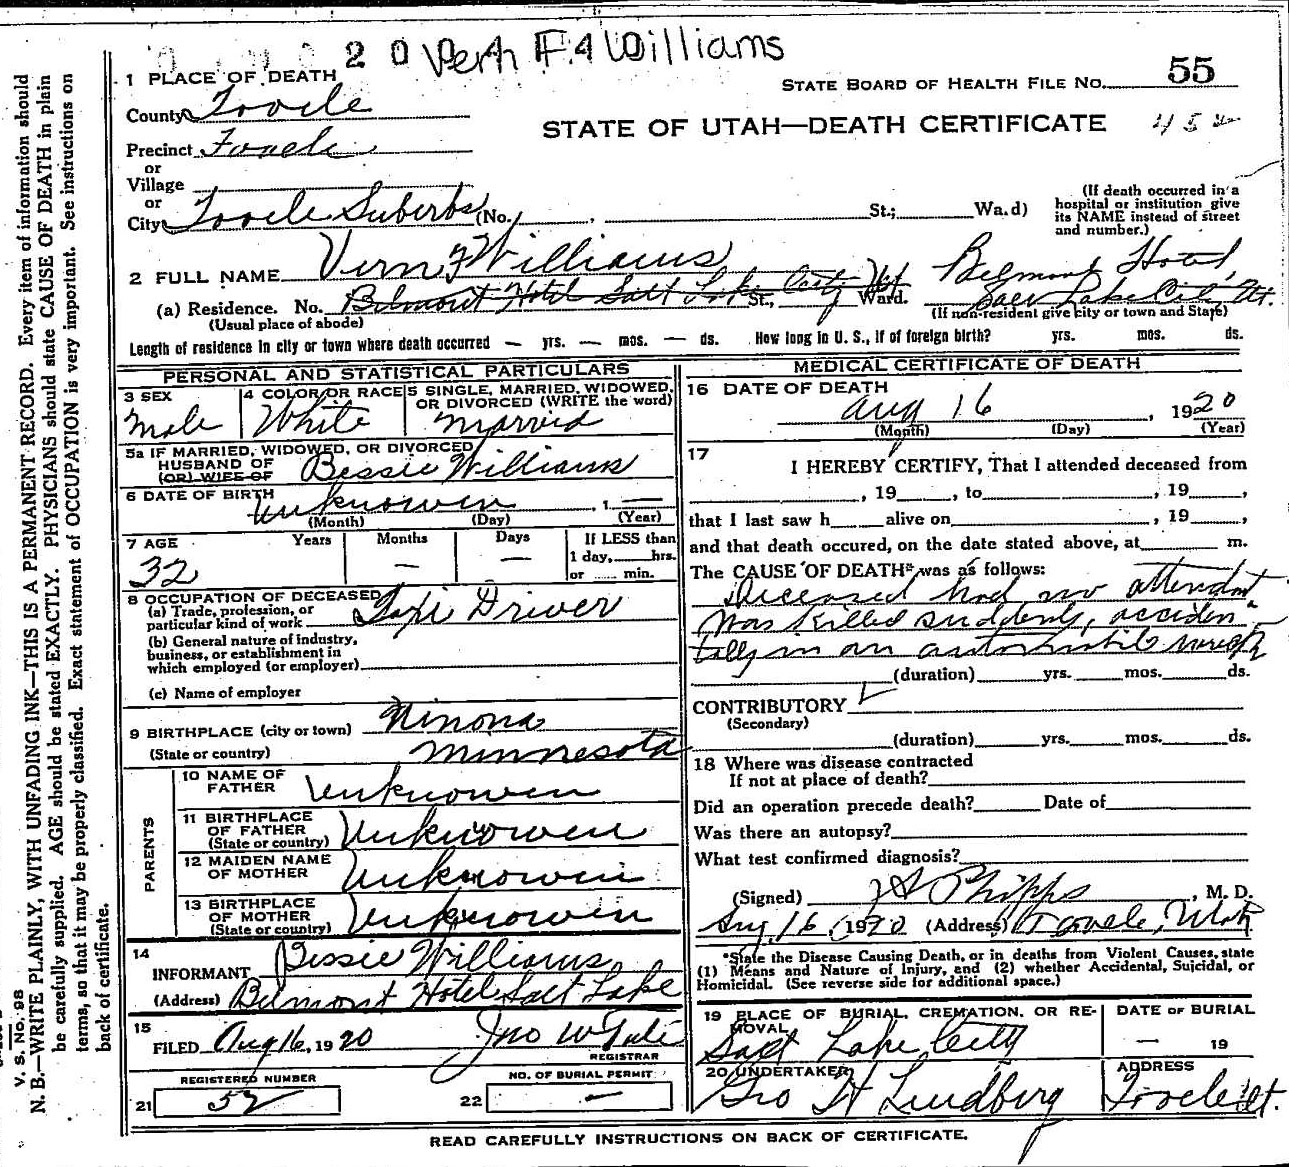 Vern F. Williams
1 PLACE OF DEATH
STATE BOARD OF HEALTH FILE No. 55
County Tooele
STATE OF UTAH—DEATH CERTIFICATE 452
Precinct Tooele
or
Village
or
City Tooele Suberbs (No. , St.; Wa.d)
(If death occurred in a
hospital or institution give
its NAME instead of street
and number.)
2 FULL NAME Vern F Williams
(a) Residence. No. Belmont Hotel Salt Lake City Ut St., Ward. Belmont Hotel, Salt Lake City, Ut.
(Usual place of abode) (If non-resident give city or town and State)
Length of residence in city or town where death occurred — yrs. — mos. — ds. How long in U. S., if of foreign birth? yrs. mos. ds.
PERSONAL AND STATISTICAL PARTICULARS
3 SEX Male
4 COLOR OR RACE White
5 SINGLE, MARRIED, WIDOWED,
OR DIVORCED (WRITE the word)
Married
5a IF MARRIED, WIDOWED, OR DIVORCED
HUSBAND OF
(OR) WIFE OF Bessie Williams
6 DATE OF BIRTH Unknowen , 1 —
(Month) (Day) (Year)
7 AGE Years Months Days If LESS than
1 day, hrs.
or min.
32 — —
8 OCCUPATION OF DECEASED
(a) Trade, profession, or
particular kind of work Taxi Driver
(b) General nature of industry,
business, or establishment in
which employed (or employer)
(c) Name of employer
9 BIRTHPLACE (city or town) Winona
(State or country) Minnesota
PARENTS
10 NAME OF
FATHER Unknowen
11 BIRTHPLACE
OF FATHER
(State or country) Unknowen
12 MAIDEN NAME
OF MOTHER Unknowen
13 BIRTHPLACE
OF MOTHER
(State or country) Unknowen
14
INFORMANT Bessie Williams
(Address) Belmont Hotel Salt Lake
15
FILED Aug 16, 1920 Jno W Tate
REGISTRAR
REGISTERED NUMBER
21 52
NO. OF BURIAL PERMIT
22 —
MEDICAL CERTIFICATE OF DEATH
16 DATE OF DEATH
Aug 16, 1920
(Month) (Day) (Year)
17
I HEREBY CERTIFY, That I attended deceased from
, 19 , to , 19 ,
that I last saw h alive on , 19 ,
and that death occured, on the date stated above, at m.
The CAUSE OF DEATH* was as follows:
Deceased had no attendant
Was killed suddenly, acciden
tally in an automobile wreck
(duration) yrs. mos. ds.
CONTRIBUTORY
(Secondary)
(duration) yrs. mos. ds.
18 Where was disease contracted
If not at place of death?
Did an operation precede death? Date of
Was there an autopsy?
What test confirmed diagnosis?
(Signed) Phipps, M. D.
Aug. 16, 1920 (Address) Tooele, Utah
*State the Disease Causing Death, or in deaths from Violent Causes, state
(1) Means and Nature of Injury, and (2) whether Accidental, Suicidal, or
Homicidal. (See reverse side for additional space.)
19 PLACE OF BURIAL, CREMATION, OR RE-
MOVAL
Salt Lake City
DATE OF BURIAL
— 19
20 UNDERTAKER
Geo H Lindberg
ADDRESS
Tooele Ut.
READ CAREFULLY INSTRUCTIONS ON BACK OF CERTIFICATE.
V. S. No. 98
N. B.—WRITE PLAINLY, WITH UNFADING INK—THIS IS A PERMANENT RECORD. Every item of information should
be carefully supplied. AGE should be stated EXACTLY. PHYSICIANS should state CAUSE OF DEATH in plain
terms, so that it may be properly classified. Exact statement of OCCUPATION is very important. See instructions on
back of certificate.